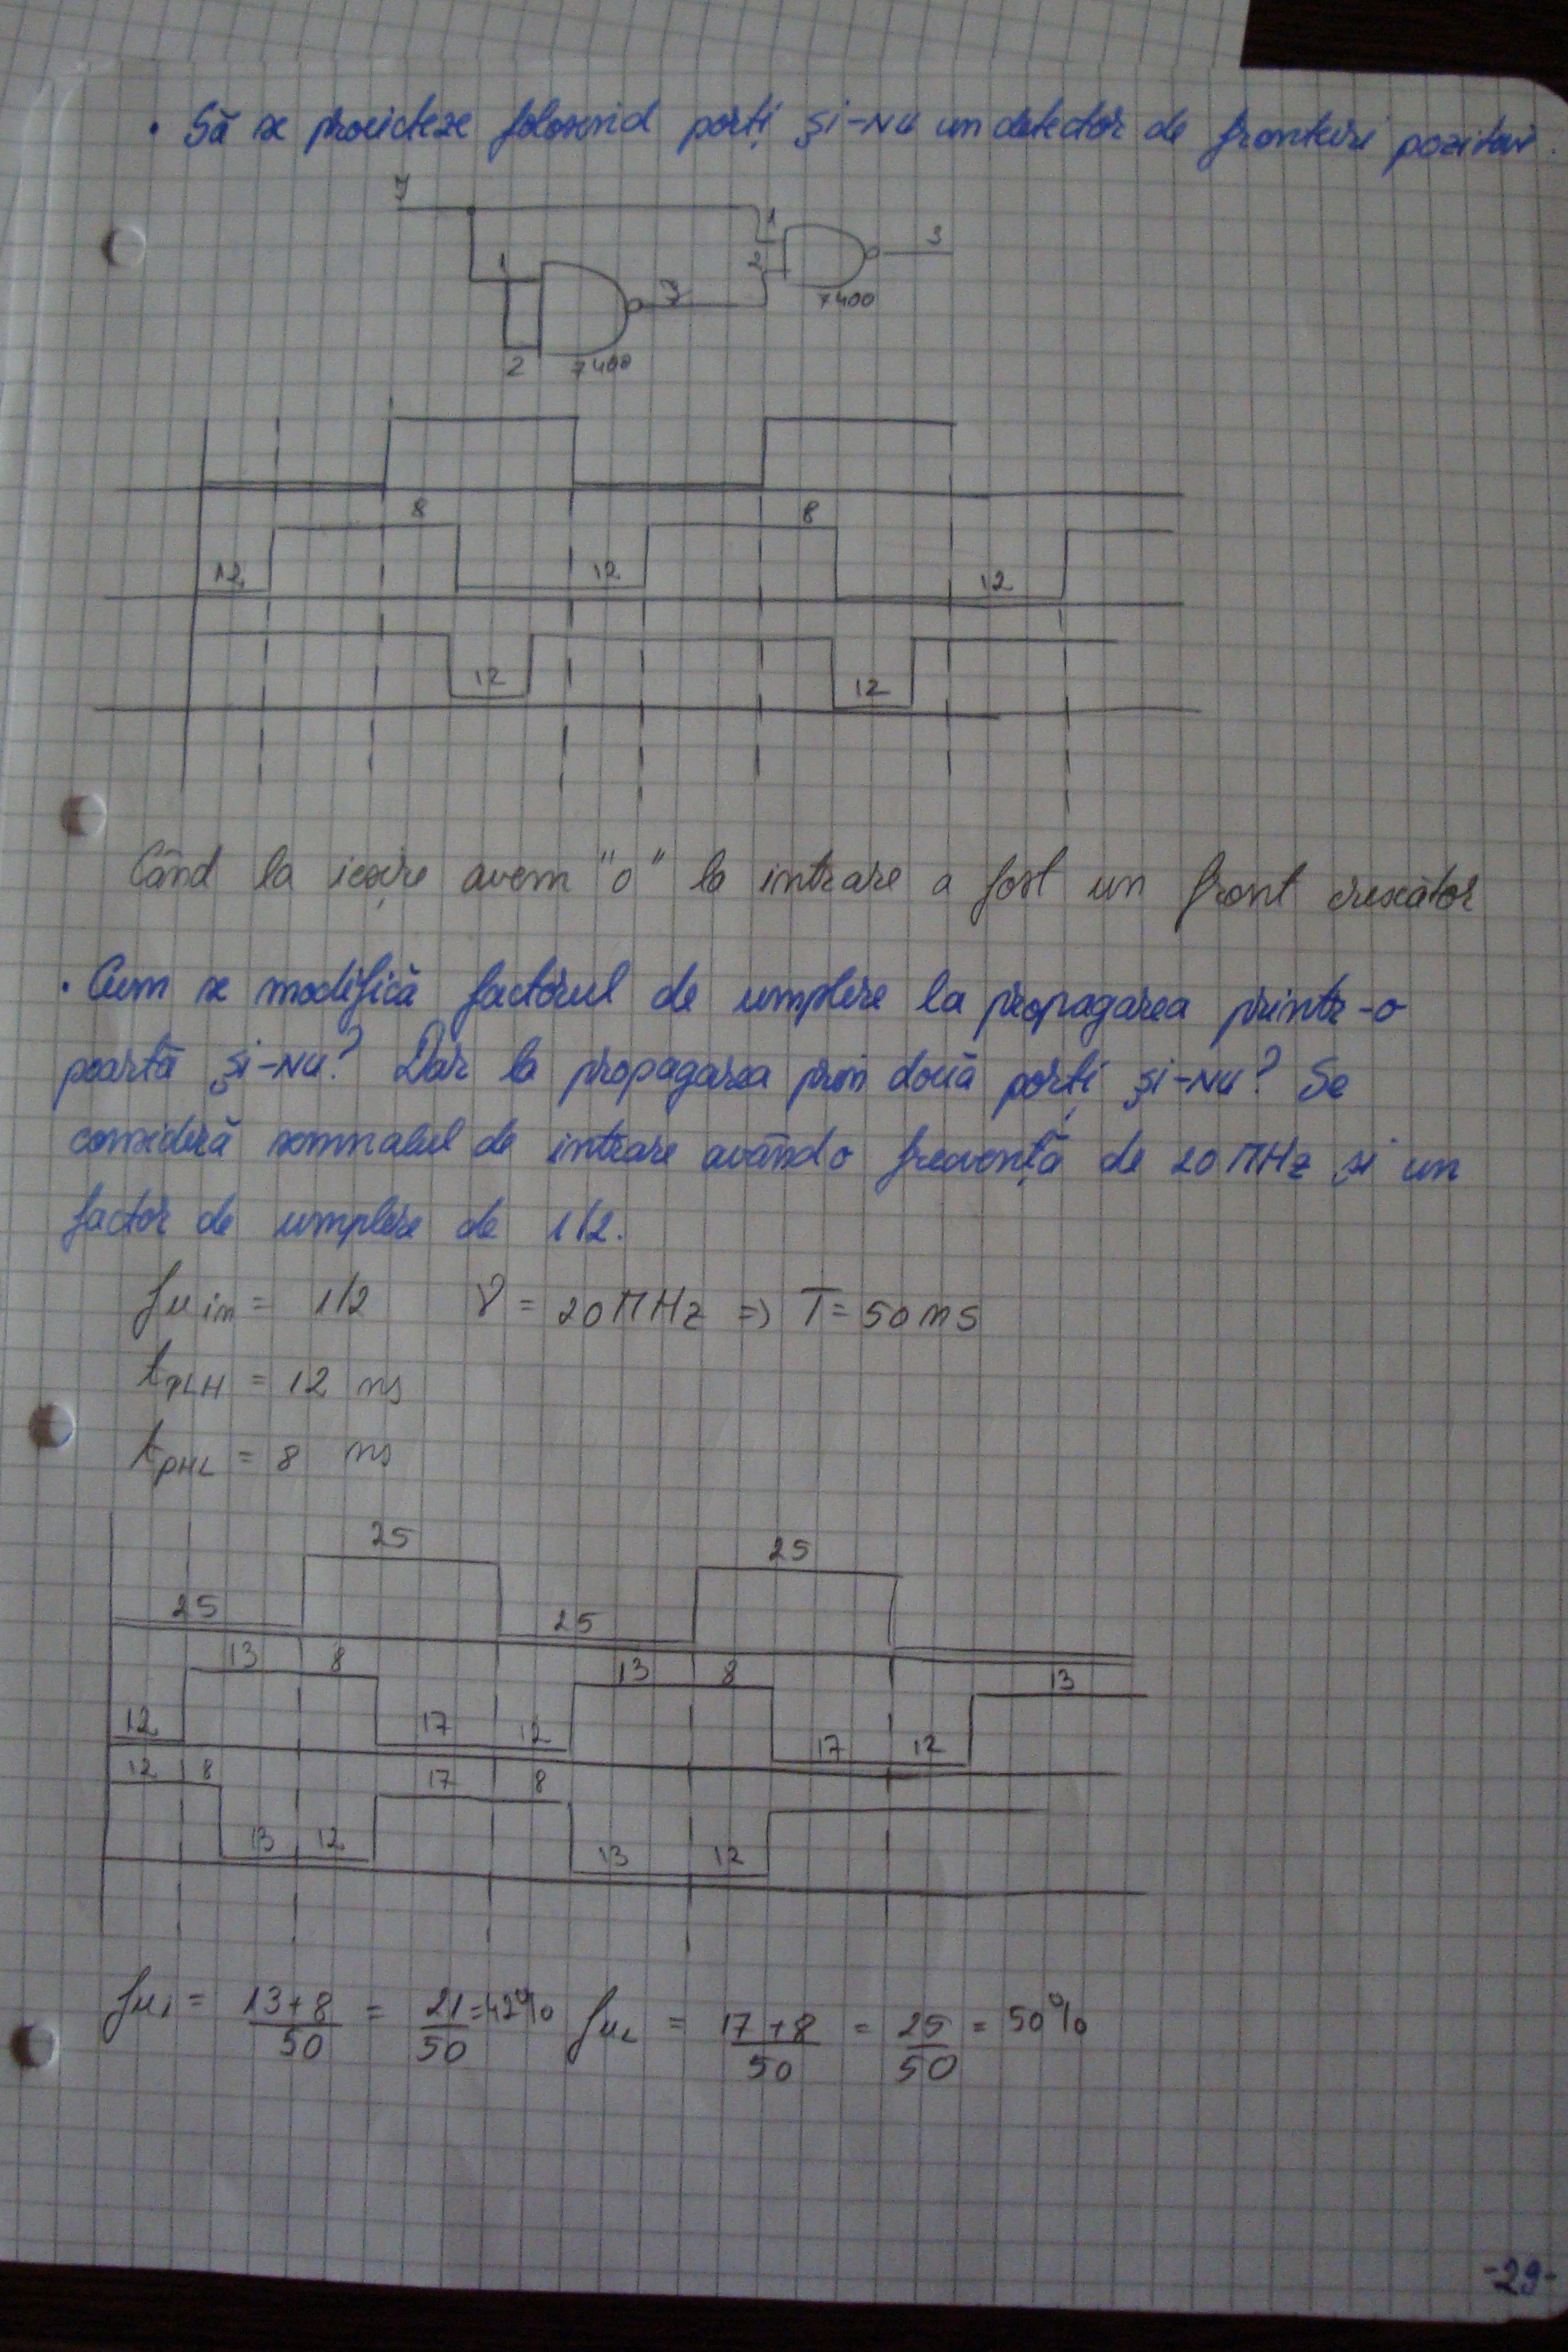 • Să se proiecteze folosind porți și-NU un detector de fronturi pozitive.
1
2
3
7400
1
2
3
7400
8
8
12
12
12
12
12
Când la ieșire avem "0" la intrare a fost un front crescător
• Cum se modifică factorul de umplere la propagarea printr-o
poartă și-NU? Dar la propagarea prin două porți și-NU? Se
consideră semnalul de intrare având o frecvență de 20 MHz și un
factor de umplere de 1/2.
fu in = 1/2 ν = 20 MHz => T = 50 ns
tPLH = 12 ns
tPHL = 8 ns
25
25
25
25
13 8 13 8 13
12 17 12 17 12
12 8 17 8
13 12 13 12
fu1 = 13+8/50 = 21/50 = 42% fu2 = 17+8/50 = 25/50 = 50%
-29-